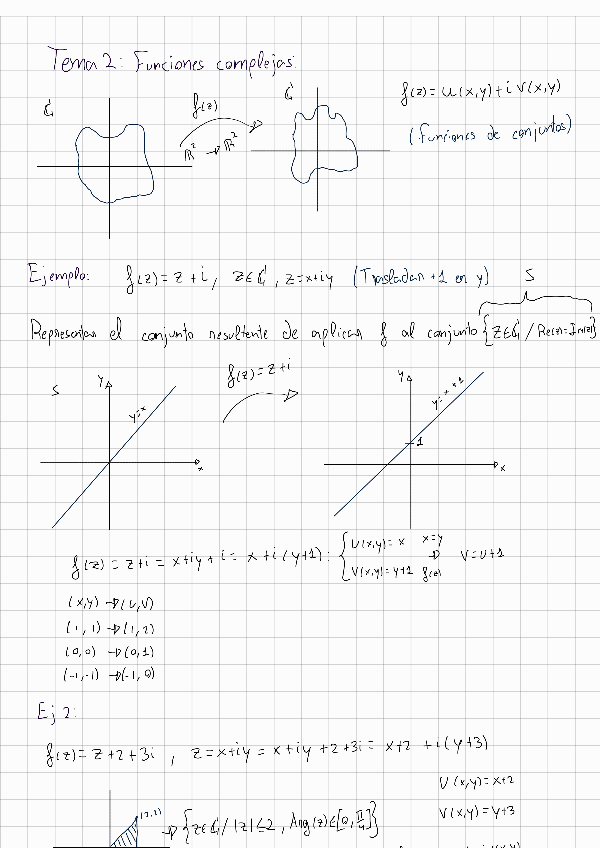 Tema 2: Funciones complejas:
ℂ f(z) ℝ² → ℝ² ℂ
f(z) = u(x,y) + i v(x,y)
(Funciones de conjuntos)
Ejemplo: f(z) = z + i, z∈ℂ, z=x+iy (Trasladar +1 en y) S
Representar el conjunto resultante de aplicar f al conjunto {z∈ℂ / Re(z)=Im(z)}
S y y=x x
f(z) = z+i
y y=x+1 1 x
f(z) = z+i = x+iy+i = x+i(y+1): { U(x,y) = x x=y
V(x,y) = y+1 f(z) → V=U+1
(x,y) → (U,V)
(1,1) → (1,2)
(0,0) → (0,1)
(-1,-1) → (-1,0)
Ej 2:
f(z) = z+2+3i , z=x+iy = x+iy+2+3i = x+2 + i(y+3)
U(x,y) = x+2
V(x,y) = y+3
(2,2) → {z∈ℂ / |z|≤2, Arg(z)∈[0, π/4]}